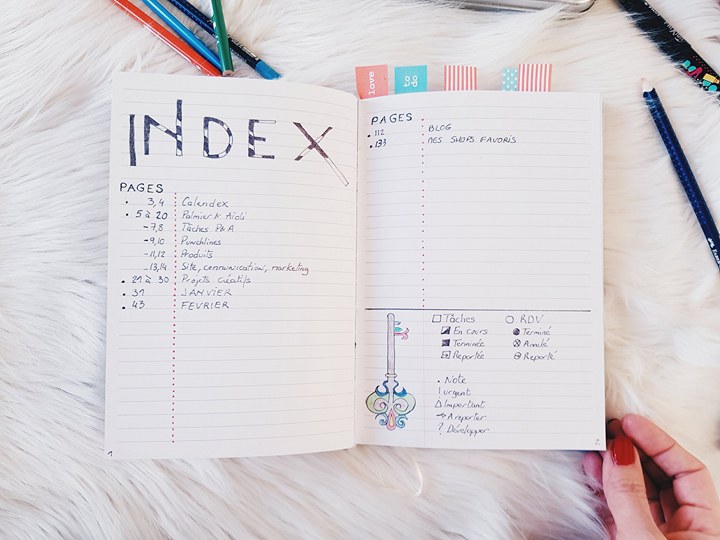 love
to do
INDEX
PAGES
• 3,4 Calendex
• 5 à 20 Palmier & Aïoli
-7,8 Tâches P&A
-9,10 Punchlines
-11,12 Produits
-13,14 Site, communication, marketing
• 21 à 30 Projets créatifs
• 31 JANVIER
• 43 FEVRIER
1
PAGES
• 112 BLOG
• 133 MES SHOPS FAVORIS
Tâches
En cours
Terminée
Reportée
RDV
Terminé
Annulé
Reporté
. Note
! urgent
Δ Important
→ A reporter
? Développer
2